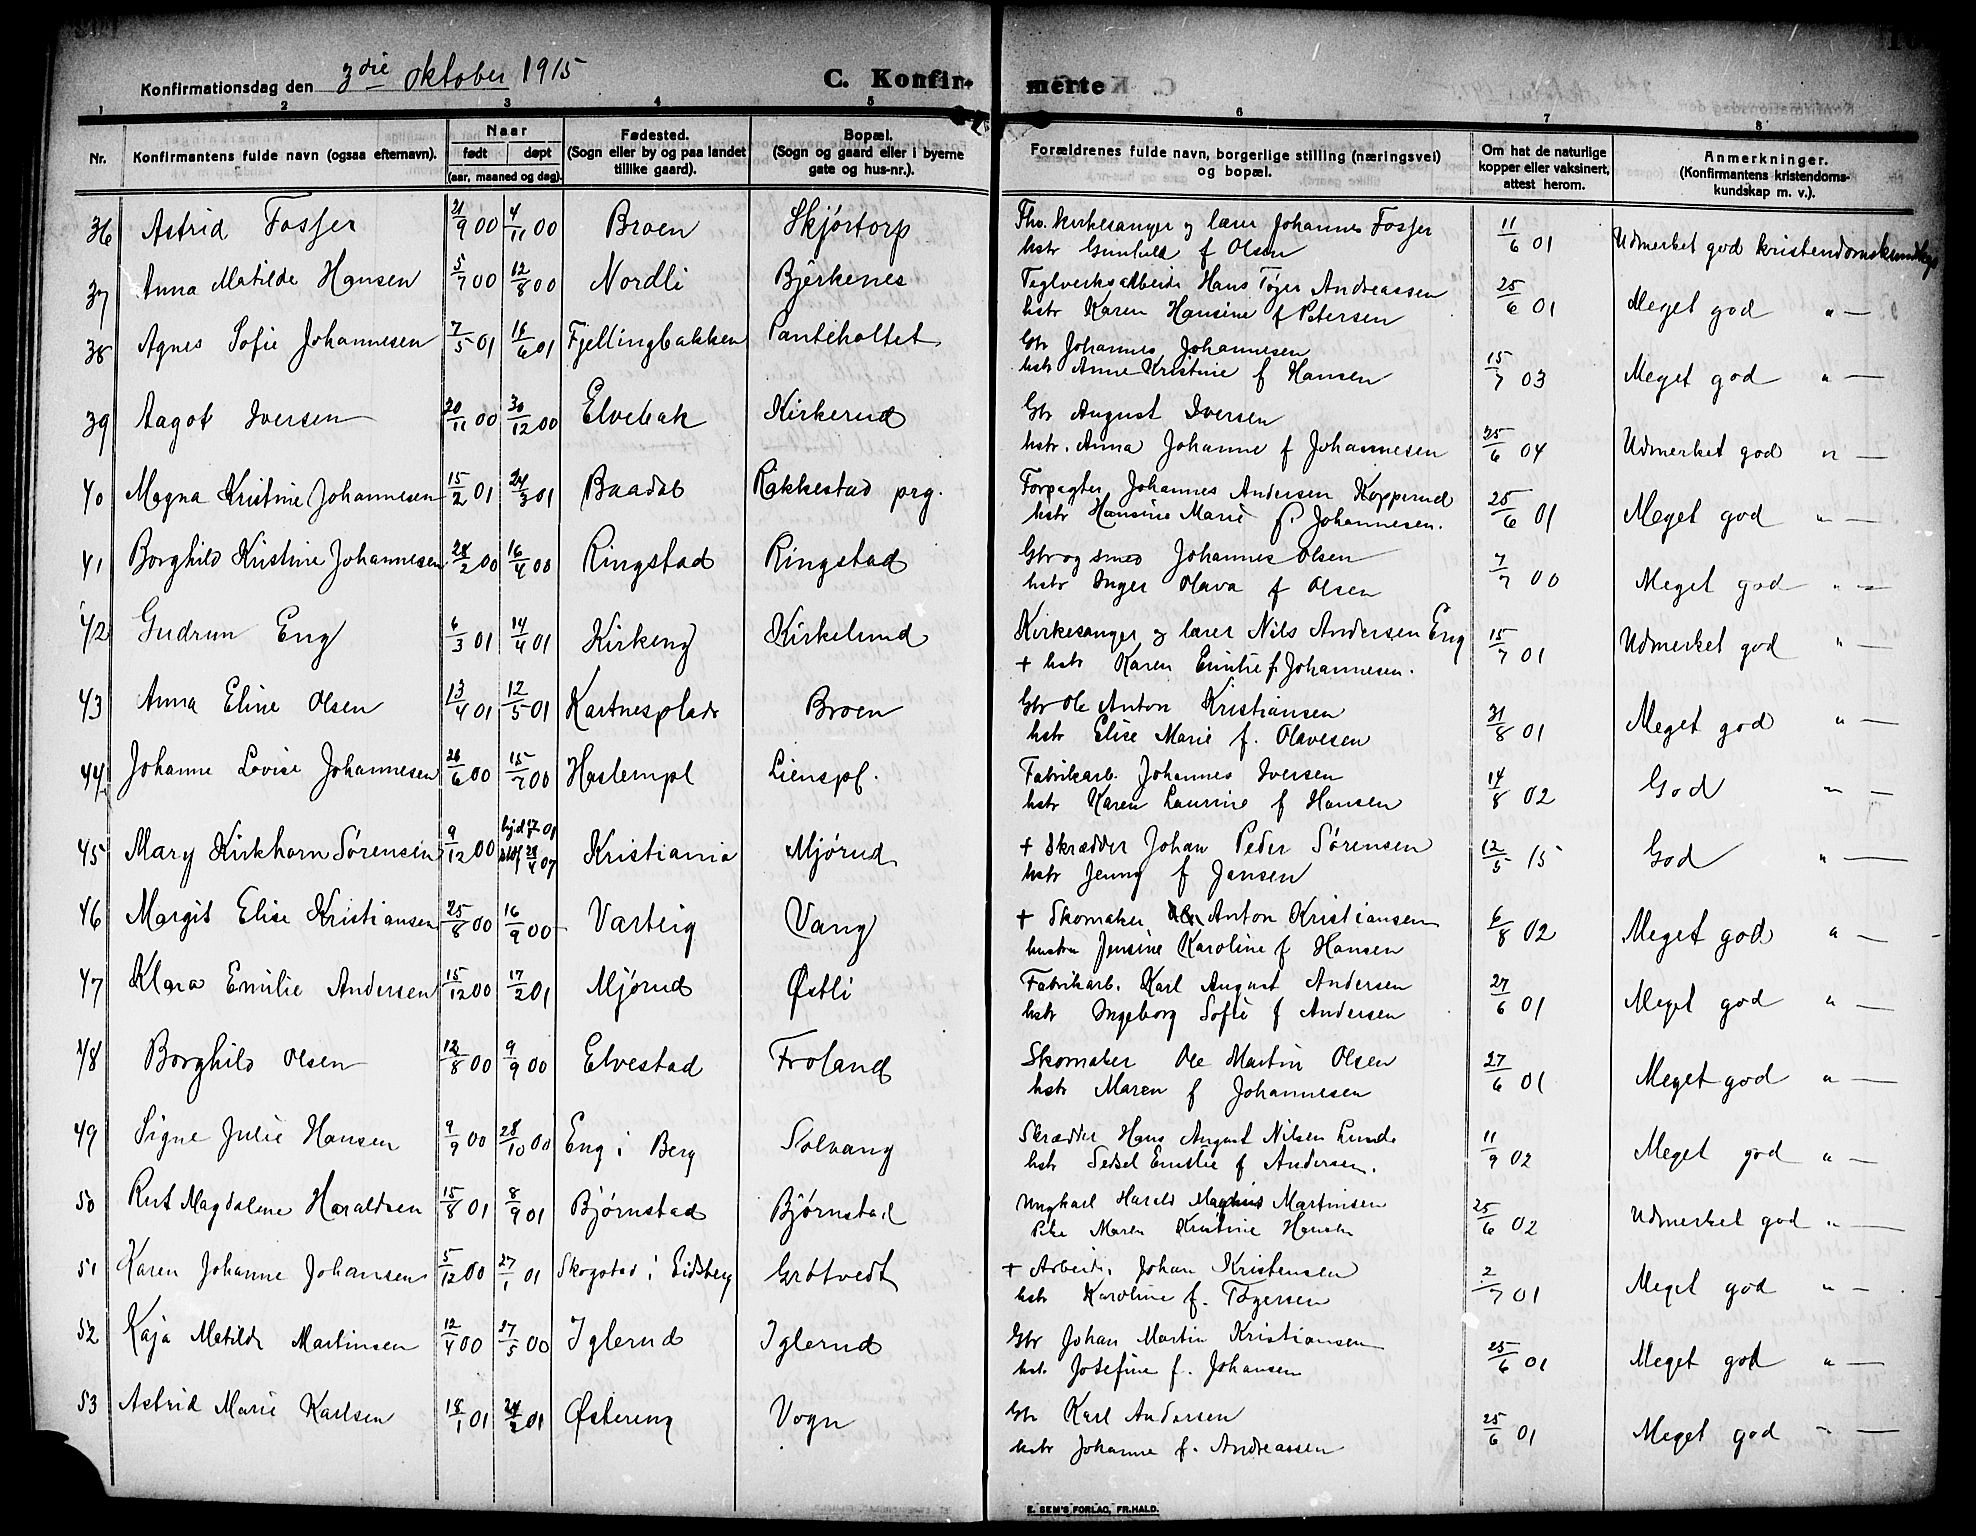 Konfirmationsdag den 3die oktober 1915 C. Konfirmerte
1 2 3 4 5 6 7 8
Nr. Konfirmantens fulde navn (ogsaa efternavn). Naar født døpt (aar, maaned og dag). Fødested. (Sogn eller by og paa landet tillike gaard). Bopæl. (Sogn og gaard eller i byerne gate og hus-nr.). Forældrenes fulde navn, borgerlige stilling (næringsvei) og bopæl. Om hat de naturlige kopper eller vaksinert, attest herom. Anmerkninger. (Konfirmantens kristendomskundskap m. v.).
36 Astrid Fosser 21/9 00 4/11 00 Broen Skjørtorp Fhv. kirkesanger og lærer Johannes Fosser 11/6 01 Udmerket god kristendomskundskap
hstr Gunhild f Olsen
37 Anna Matilde Hansen 5/7 00 12/8 00 Nordli Bjerkenes Teglverksarbeide Hans Tøger Andreassen 25/6 01 Meget god " —
hstr Karen Hansine f Petersen
38 Agnes Sofie Johannesen 7/5 01 16/6 01 Fjellingbakken Panteholtet Gbr Johannes Johannesen 15/7 03 Meget god " —
hstr Anne Kristine f Hansen
39 Aagot Iversen 20/11 00 30/12 00 Elvebak Kirkerud Gbr August Iversen 25/6 04 Udmerket god " —
hstr. Anna Johanne f Johannesen
40 Magna Kristine Johannesen 15/2 01 24/3 01 Baadst Rakkestad prg. Forpagter Johannes Andersen Kopperud 25/6 01 Meget god " —
hstr Hansine Marie f. Johannesen.
41 Borghild Kristine Johannesen 28/2 00 16/4 00 Ringstad Ringstad Gbr og smed Johannes Olsen 7/7 00 Meget god " —
hstr Inger Olava f Olsen
42 Gudrun Eng 6/3 01 14/4 01 Kirkeng Kirkelund Kirkesanger og lærer Nils Andersen Eng 15/7 01 Udmerket god " —
+ hstr Karen Emilie f Johannesen.
43 Anna Eline Olsen 13/4 01 12/5 01 Kartnesplads Broen Gbr Ole Anton Kristiansen 31/8 01 Meget god " —
hstr Elise Marie f. Olavesen
44 Johanne Lovise Johannesen 26/6 00 15/7 00 Haslempl Lienspl. Fabrikarb. Johannes Iversen 14/8 02 God " —
hstr Karen Laurine f Hansen
45 Mary Kirkhorn Sørensen 9/12 00 Kristiania Mjørud + Skrædder Johan Peder Sørensen 12/5 15 God " —
hstr Jenny f Jensen
46 Margit Elise Kristiansen 25/8 00 16/9 00 Varteig Vang + Skomaker Anton Kristiansen 6/8 02 Meget god " —
hustru Jensine Karoline f Hansen
47 Klara Emilie Andersen 15/12 00 17/2 01 Mjørud Østli Fabrikarb. Karl August Andersen 27/6 01 Meget god " —
hstr Ingeborg Sofie f Andersen
48 Borghild Olsen 12/8 00 9/9 00 Elvestad Froland Skomaker Ole Martin Olsen 27/6 01 Meget god " —
hstr Maren f Johannesen
49 Signe Julie Hansen 9/9 00 28/10 00 Eng i Berg Solvang Skrædder Hans August Nilsen Lunde 11/9 02 Meget god " —
hstr Sedsel Emilie f Andersen.
50 Rut Magdalene Haraldsen 15/8 01 8/9 01 Bjørnstad Bjørnstad Ungkarl Harald Magnus Martinsen 25/6 02 Udmerket god " —
Pike Maren Kristine Hansen
51 Karen Johanne Johansen 5/12 00 27/1 01 Skogstad i Eidsberg Grøtvedt + Arbeid. Johan Kristensen 2/7 01 Meget god " —
hstr Karoline f. Tøgersen
52 Kaja Matilde Martinsen 12/4 00 27/5 00 Iglerud Iglerud Gbr Johan Martin Kristiansen 25/6 01 Meget god " —
hst. Josefine f. Johansen
53 Astrid Marie Karlsen 18/1 01 24/2 01 Østereng Vogn Gbr Karl Andersen 25/6 01 Meget god " —
hstr Johanne f. Andreassen
E. SEM'S FORLAG, FR.HALD.